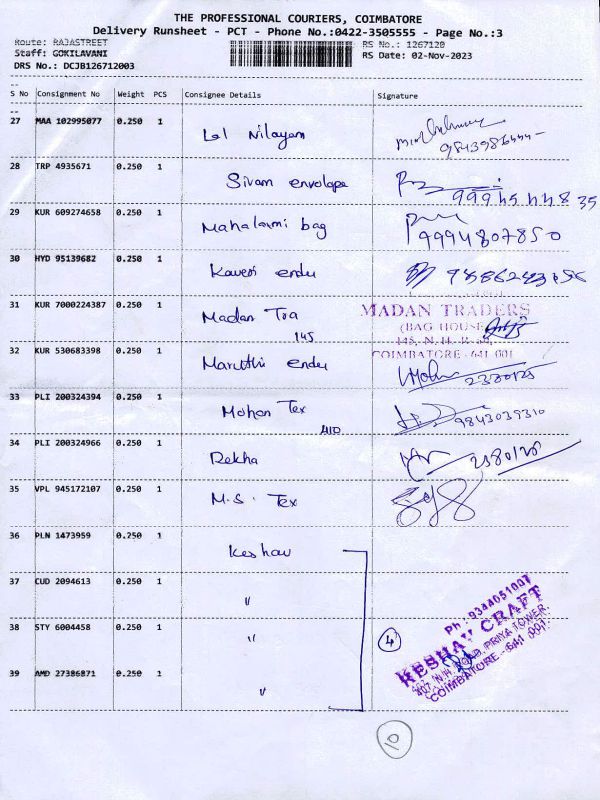 THE PROFESSIONAL COURIERS, COIMBATORE
Delivery Runsheet - PCT - Phone No.:0422-3505555 - Page No.:3
Route: RAJASTREET RS No.: 1267120
Staff: GOKILAVANI RS Date: 02-Nov-2023
DRS No.: DCJB126712003
S No Consignment No Weight PCS Consignee Details Signature
27 MAA 102995077 0.250 1 Lal Nilayam
28 TRP 4935671 0.250 1 Sivam envolape
29 KUR 609274658 0.250 1 Mahalaxmi bag 9994807850
30 HYD 95139682 0.250 1 Kaveri
31 KUR 7000224387 0.250 1 Madan Tra
145
MADAN TRADERS
(BAG HOUSE)
145, N. H. R
COIMBATORE - 641 001
32 KUR 530683398 0.250 1 Maruthi
33 PLI 200324394 0.250 1 Mohan Tex 9843039310
410
34 PLI 200324966 0.250 1 Rekha
35 VPL 945172107 0.250 1 M.S. Tex
36 PLN 1473959 0.250 1 Keshav
37 CUD 2094613 0.250 1 "
38 STY 6004458 0.250 1 "
39 AMD 27386871 0.250 1 "
4
Ph: 9344051007
KESHAV CRAFT
407, N.H. ROAD, PRIYA TOWER,
COIMBATORE - 641 001.
10